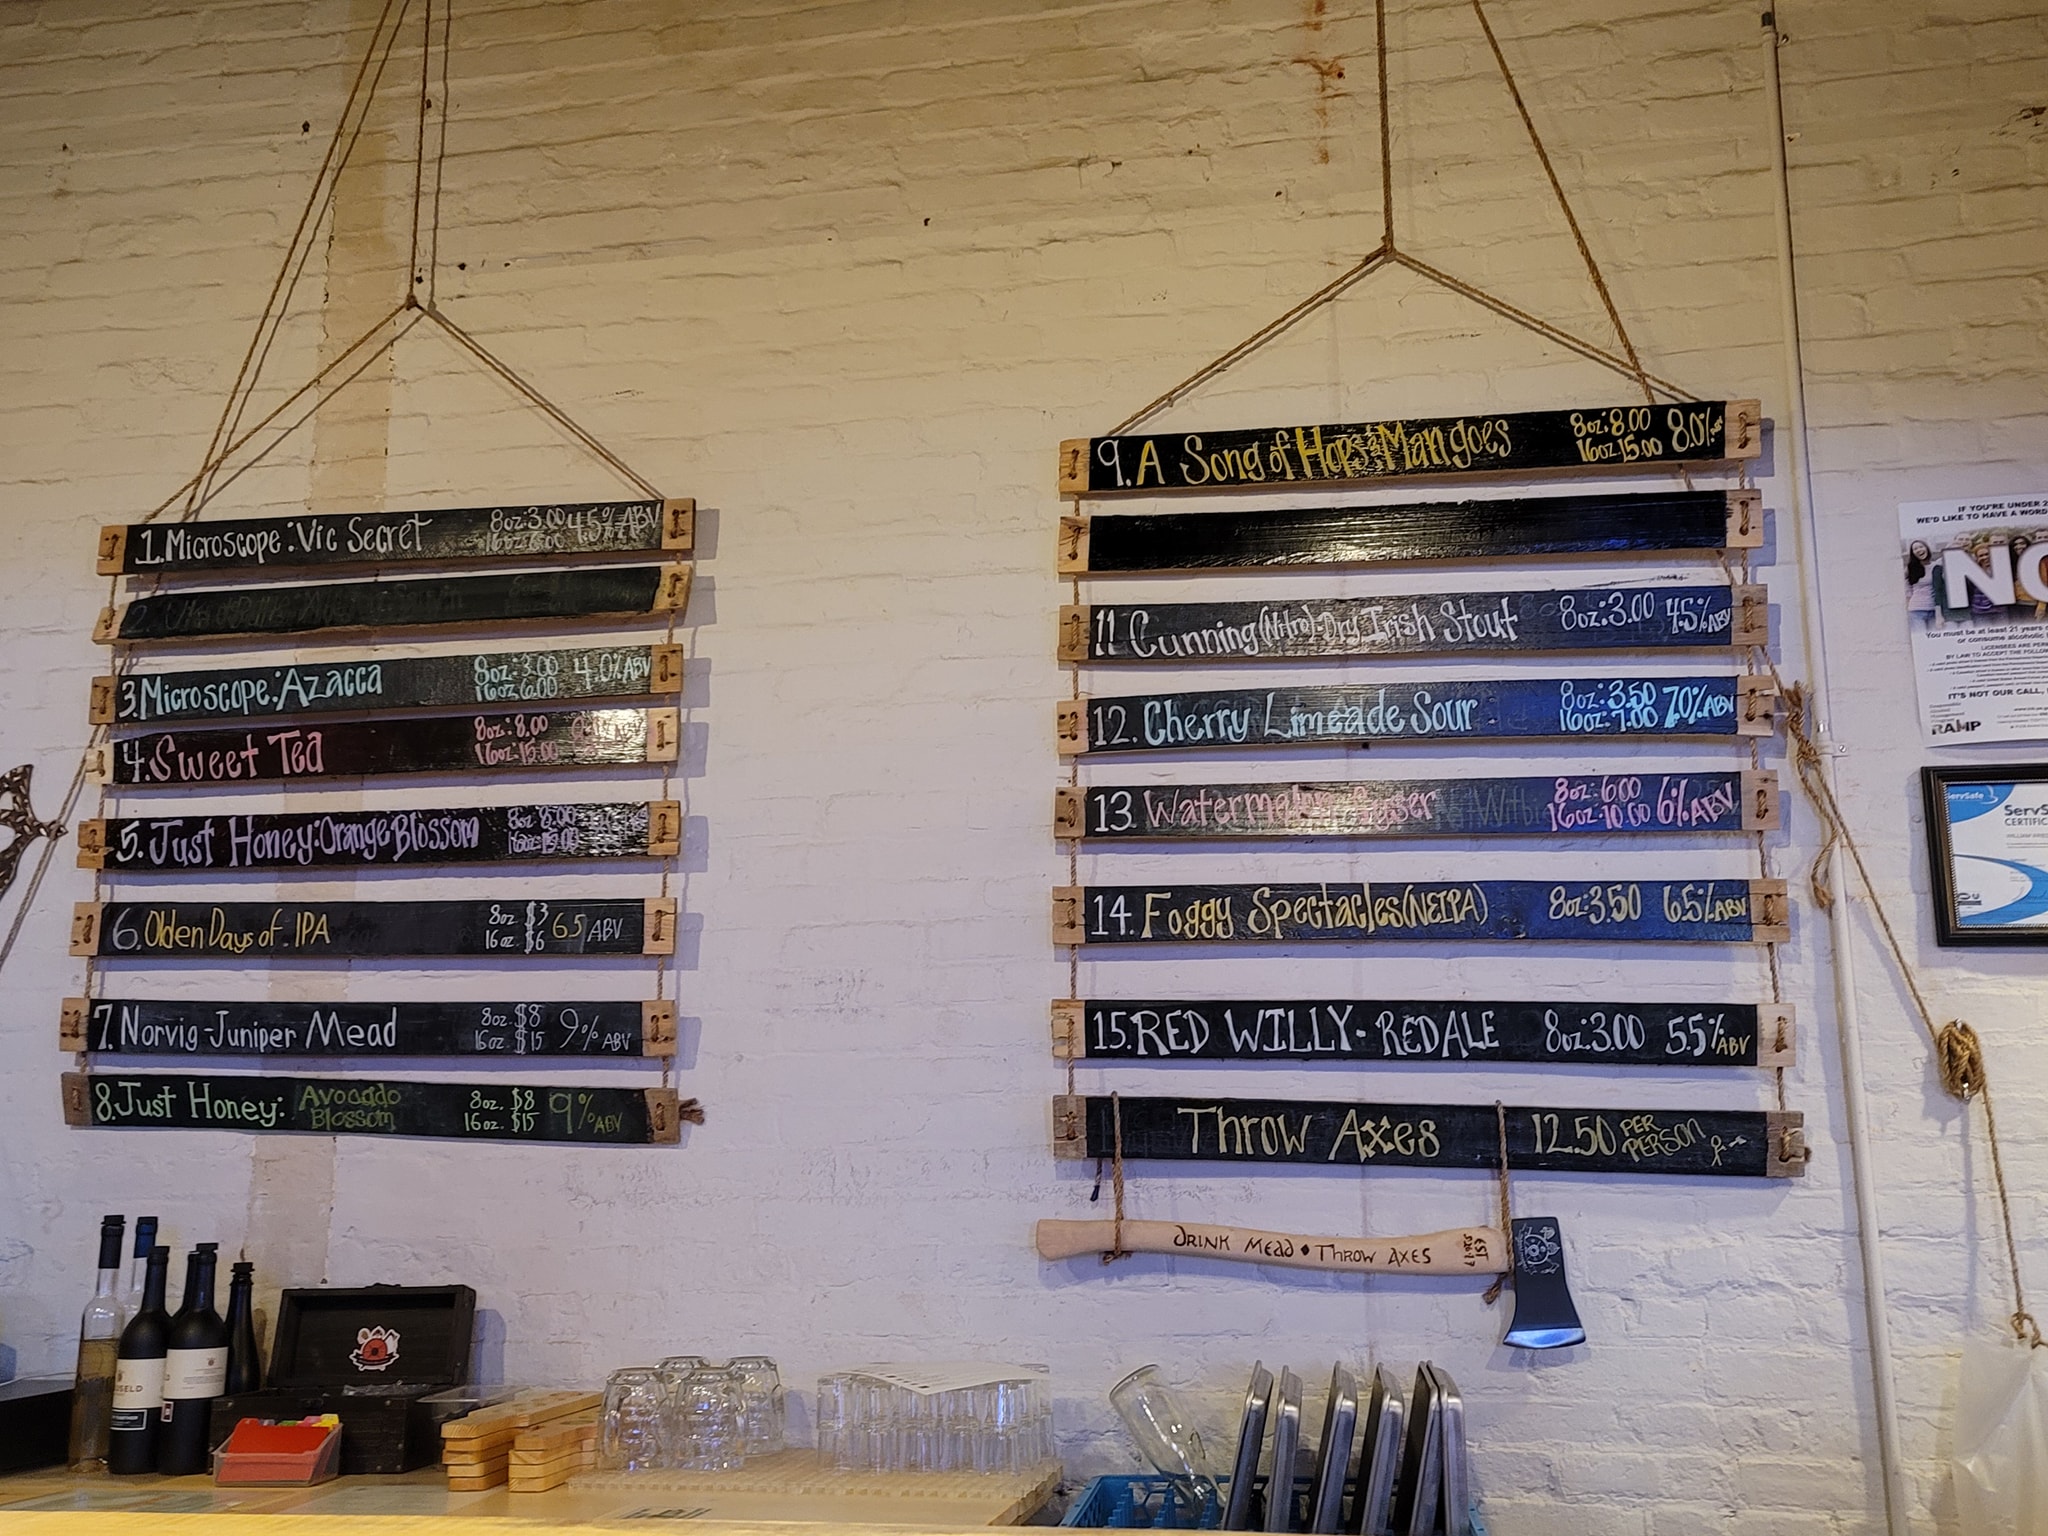 1. Microscope: Vic Secret 8oz: 3.00 4.5% ABV
16oz: 6.00
2.
3. Microscope: Azacca 8oz: 3.00 4.0% ABV
16oz 6.00
4. Sweet Tea 8oz: 8.00
16oz: 15.00
5. Just Honey: Orange Blossom 8oz: 8.00
16oz: 15.00
6. Olden Days of IPA 8oz. $3 6.5 ABV
16oz. $6
7. Norvig-Juniper Mead 8oz. $8 9% ABV
16oz. $15
8. Just Honey: Avocado Blossom 8oz. $8 9% ABV
16oz. $15
9. A Song of Hops & Mangoes 8oz: 8.00 8.0%
16oz 15.00
11. Cunning (Nitro)-Dry Irish Stout 8oz: 3.00 4.5% ABV
12. Cherry Limeade Sour 8oz: 3.50 7.0% ABV
16oz: 7.00
13. Watermelon Geyser 8oz: 6.00 6% ABV
16oz: 10.00
14. Foggy Spectacles (NEIPA) 8oz: 3.50 6.5% ABV
15. RED WILLY - RED ALE 8oz: 3.00 5.5% ABV
Throw Axes 12.50 PER PERSON
DRINK MEAD • THROW AXES EST 2017
IF YOU'RE UNDER 2
WE'D LIKE TO HAVE A WORD
NO
You must be at least 21 years
or consume alcoholic
LICENSEES ARE PER
BY LAW TO ACCEPT THE FOLLOW
IT'S NOT OUR CALL,
RAMP
ServSafe
ServS
CERTIFIC